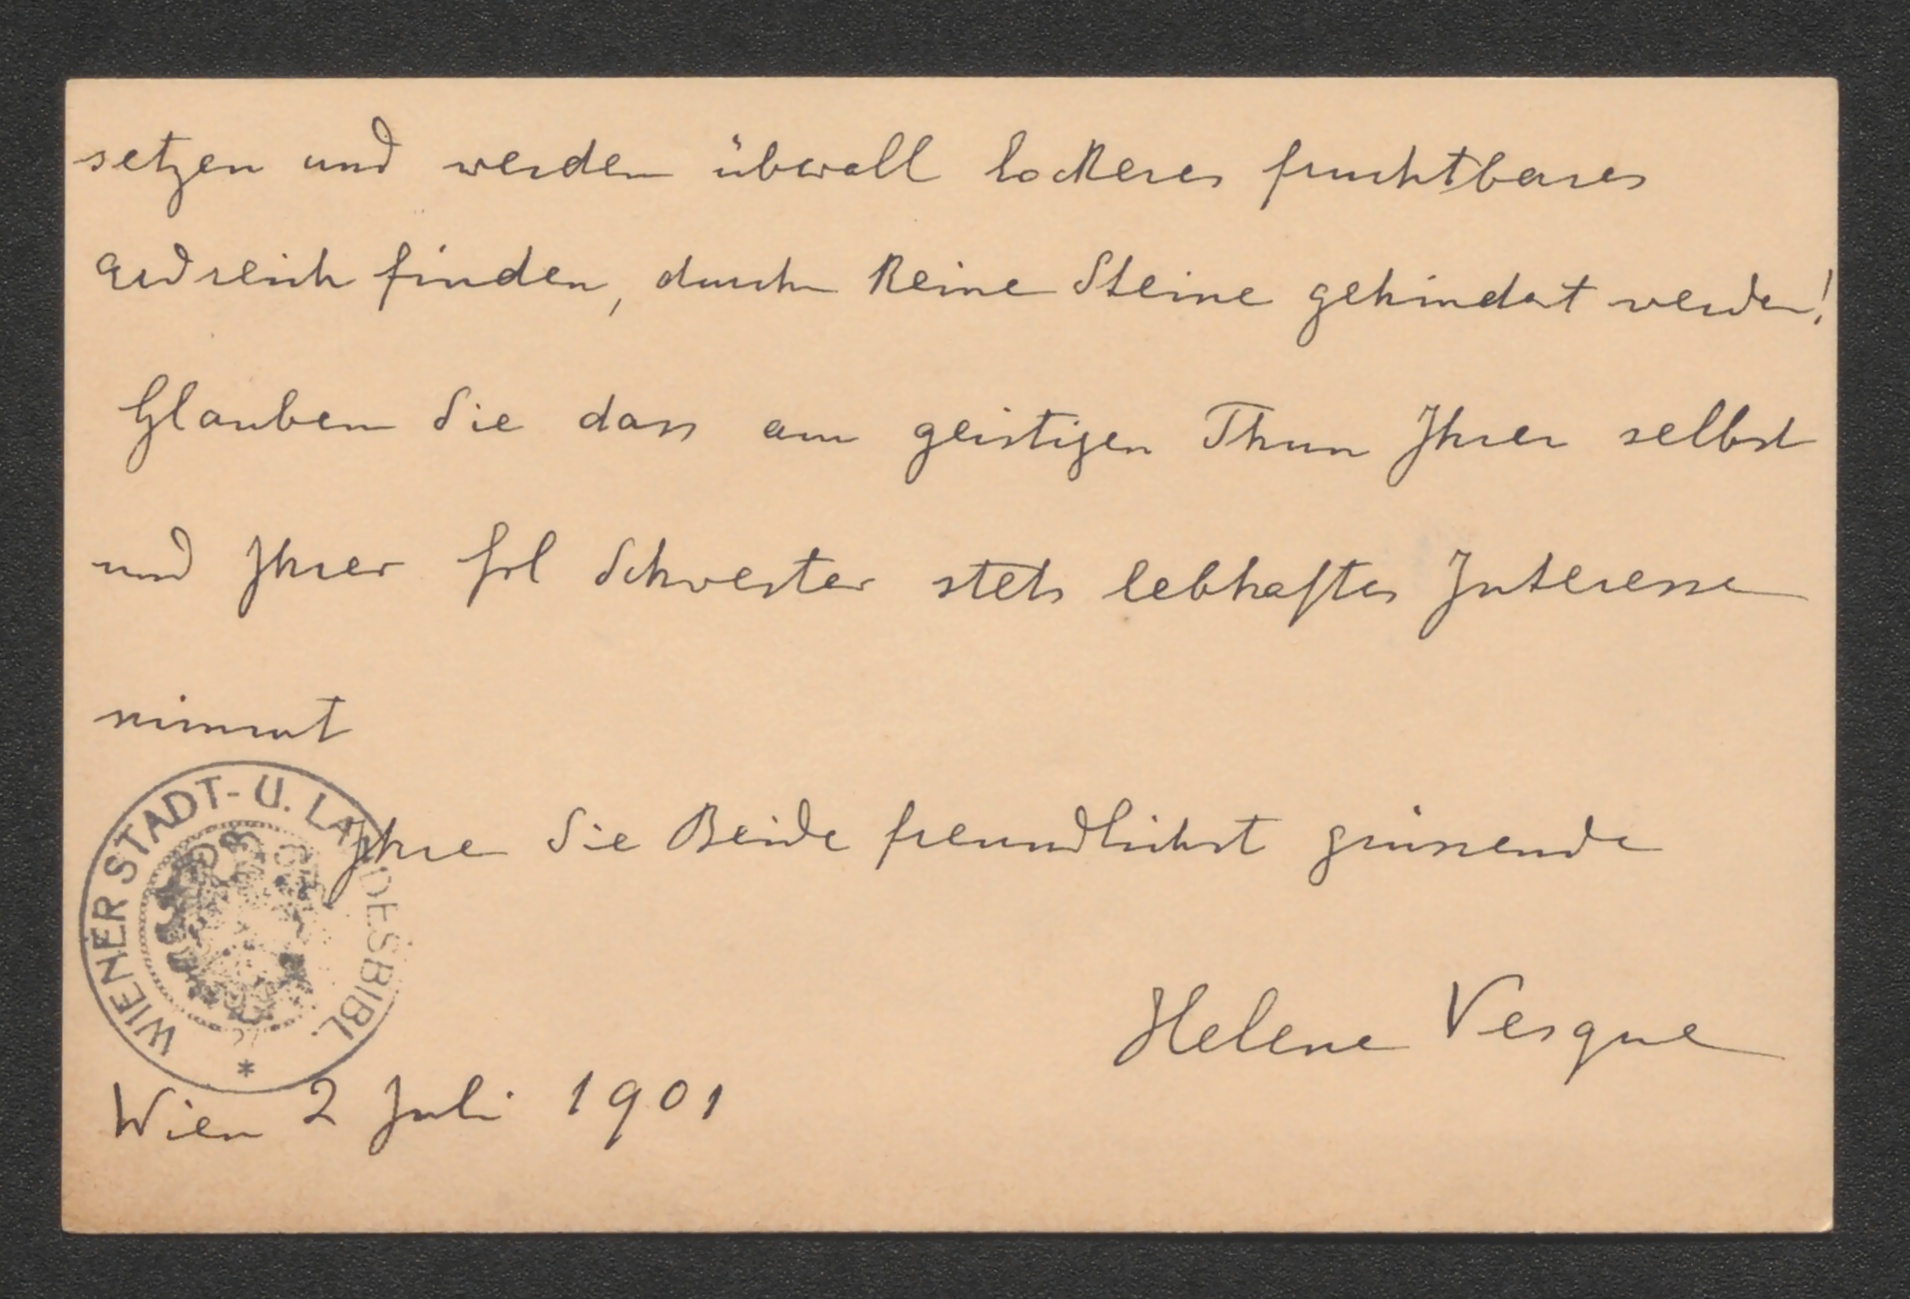 setzen und werden überall lockeres fruchtbares
Erdreich finden, durch keine Steine gehindert werden!
Glauben Sie dass am geistigen Thun Ihrer selbst
und Ihrer Frl Schwester stets lebhaftes Interesse
nimmt
WIENER STADT- U. LANDESBIBL.
Ihre Sie Beide freundlichst grüssende
Helene Vesque
Wien 2 Juli 1901